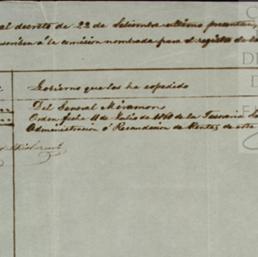 al decreto de 22 de Setiembre último
á la comision nombrada para el registro de
Gobierno que los ha expedido
Del General Miramon
Orden fecha 11 de Julio de 1860 de la Tesoreria
Administracion ó Recaudacion de Rentas de este